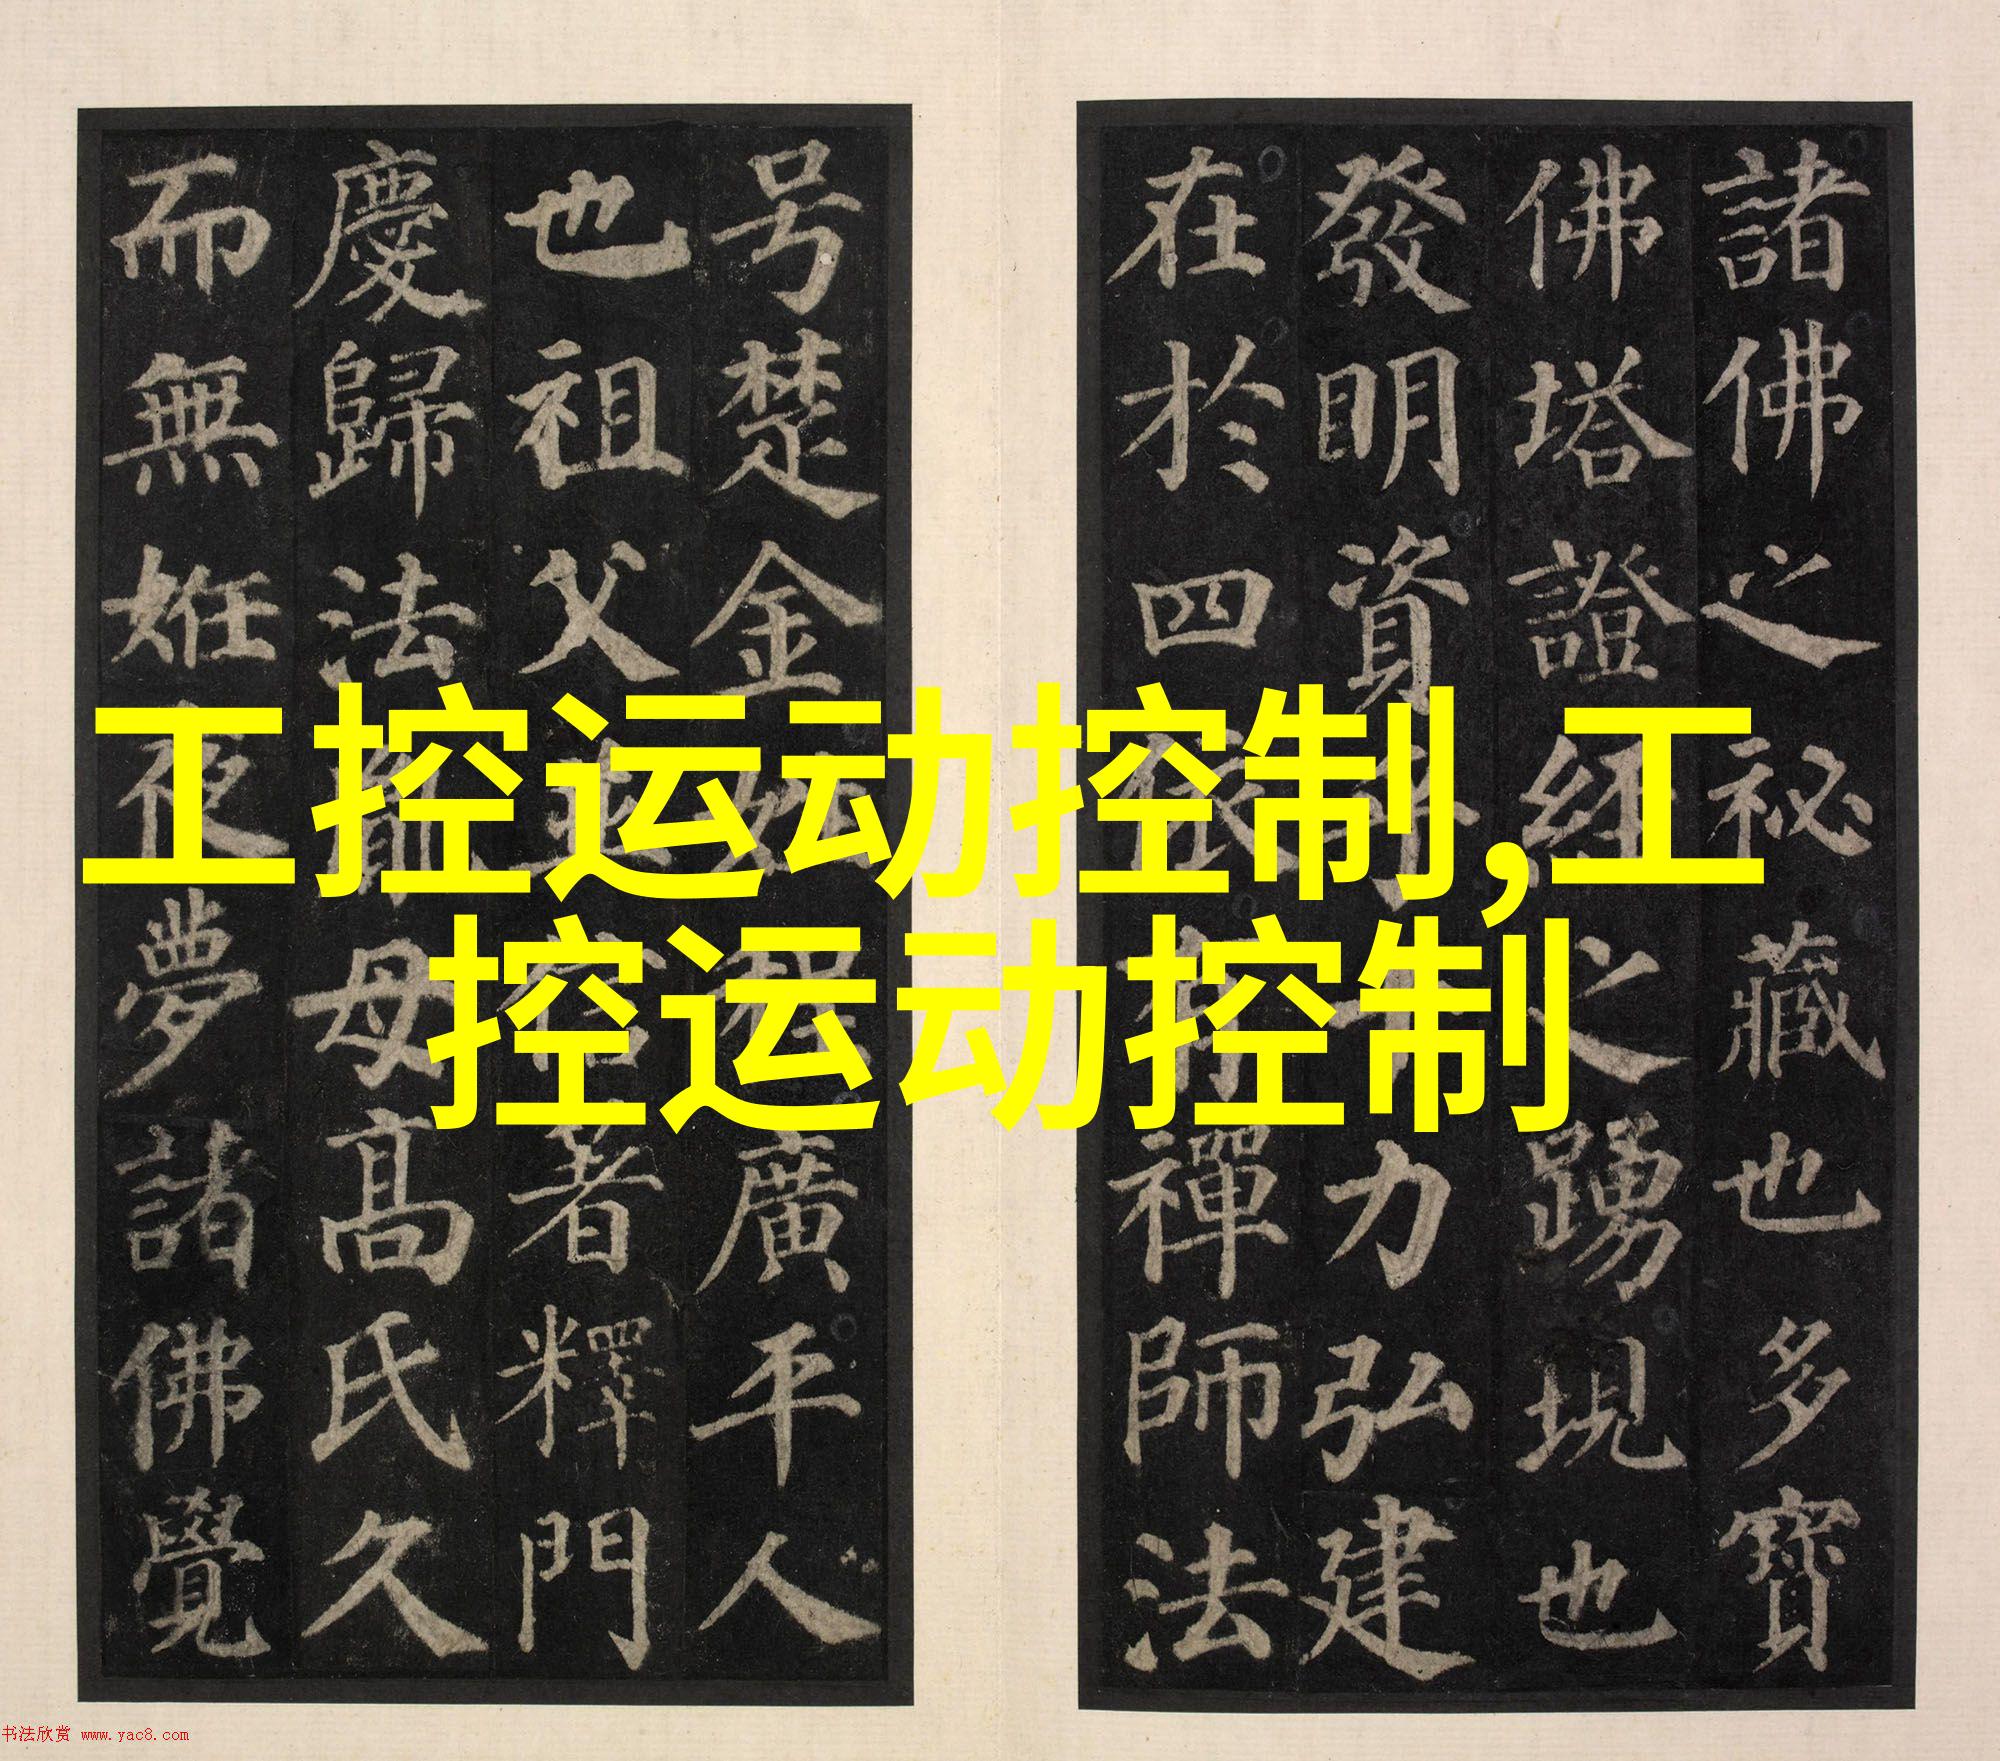 諸佛之祕藏也多寶
佛塔證經之踴現也
發明資乎十力弘建
在於四依有禪師法
号楚金姓程廣平人
也祖父並信著釋門
慶歸法胤母髙氏久
而無姙夜夢諸佛覺
工控运动控制,工
控运动控制
书法欣赏 www.yac8.com